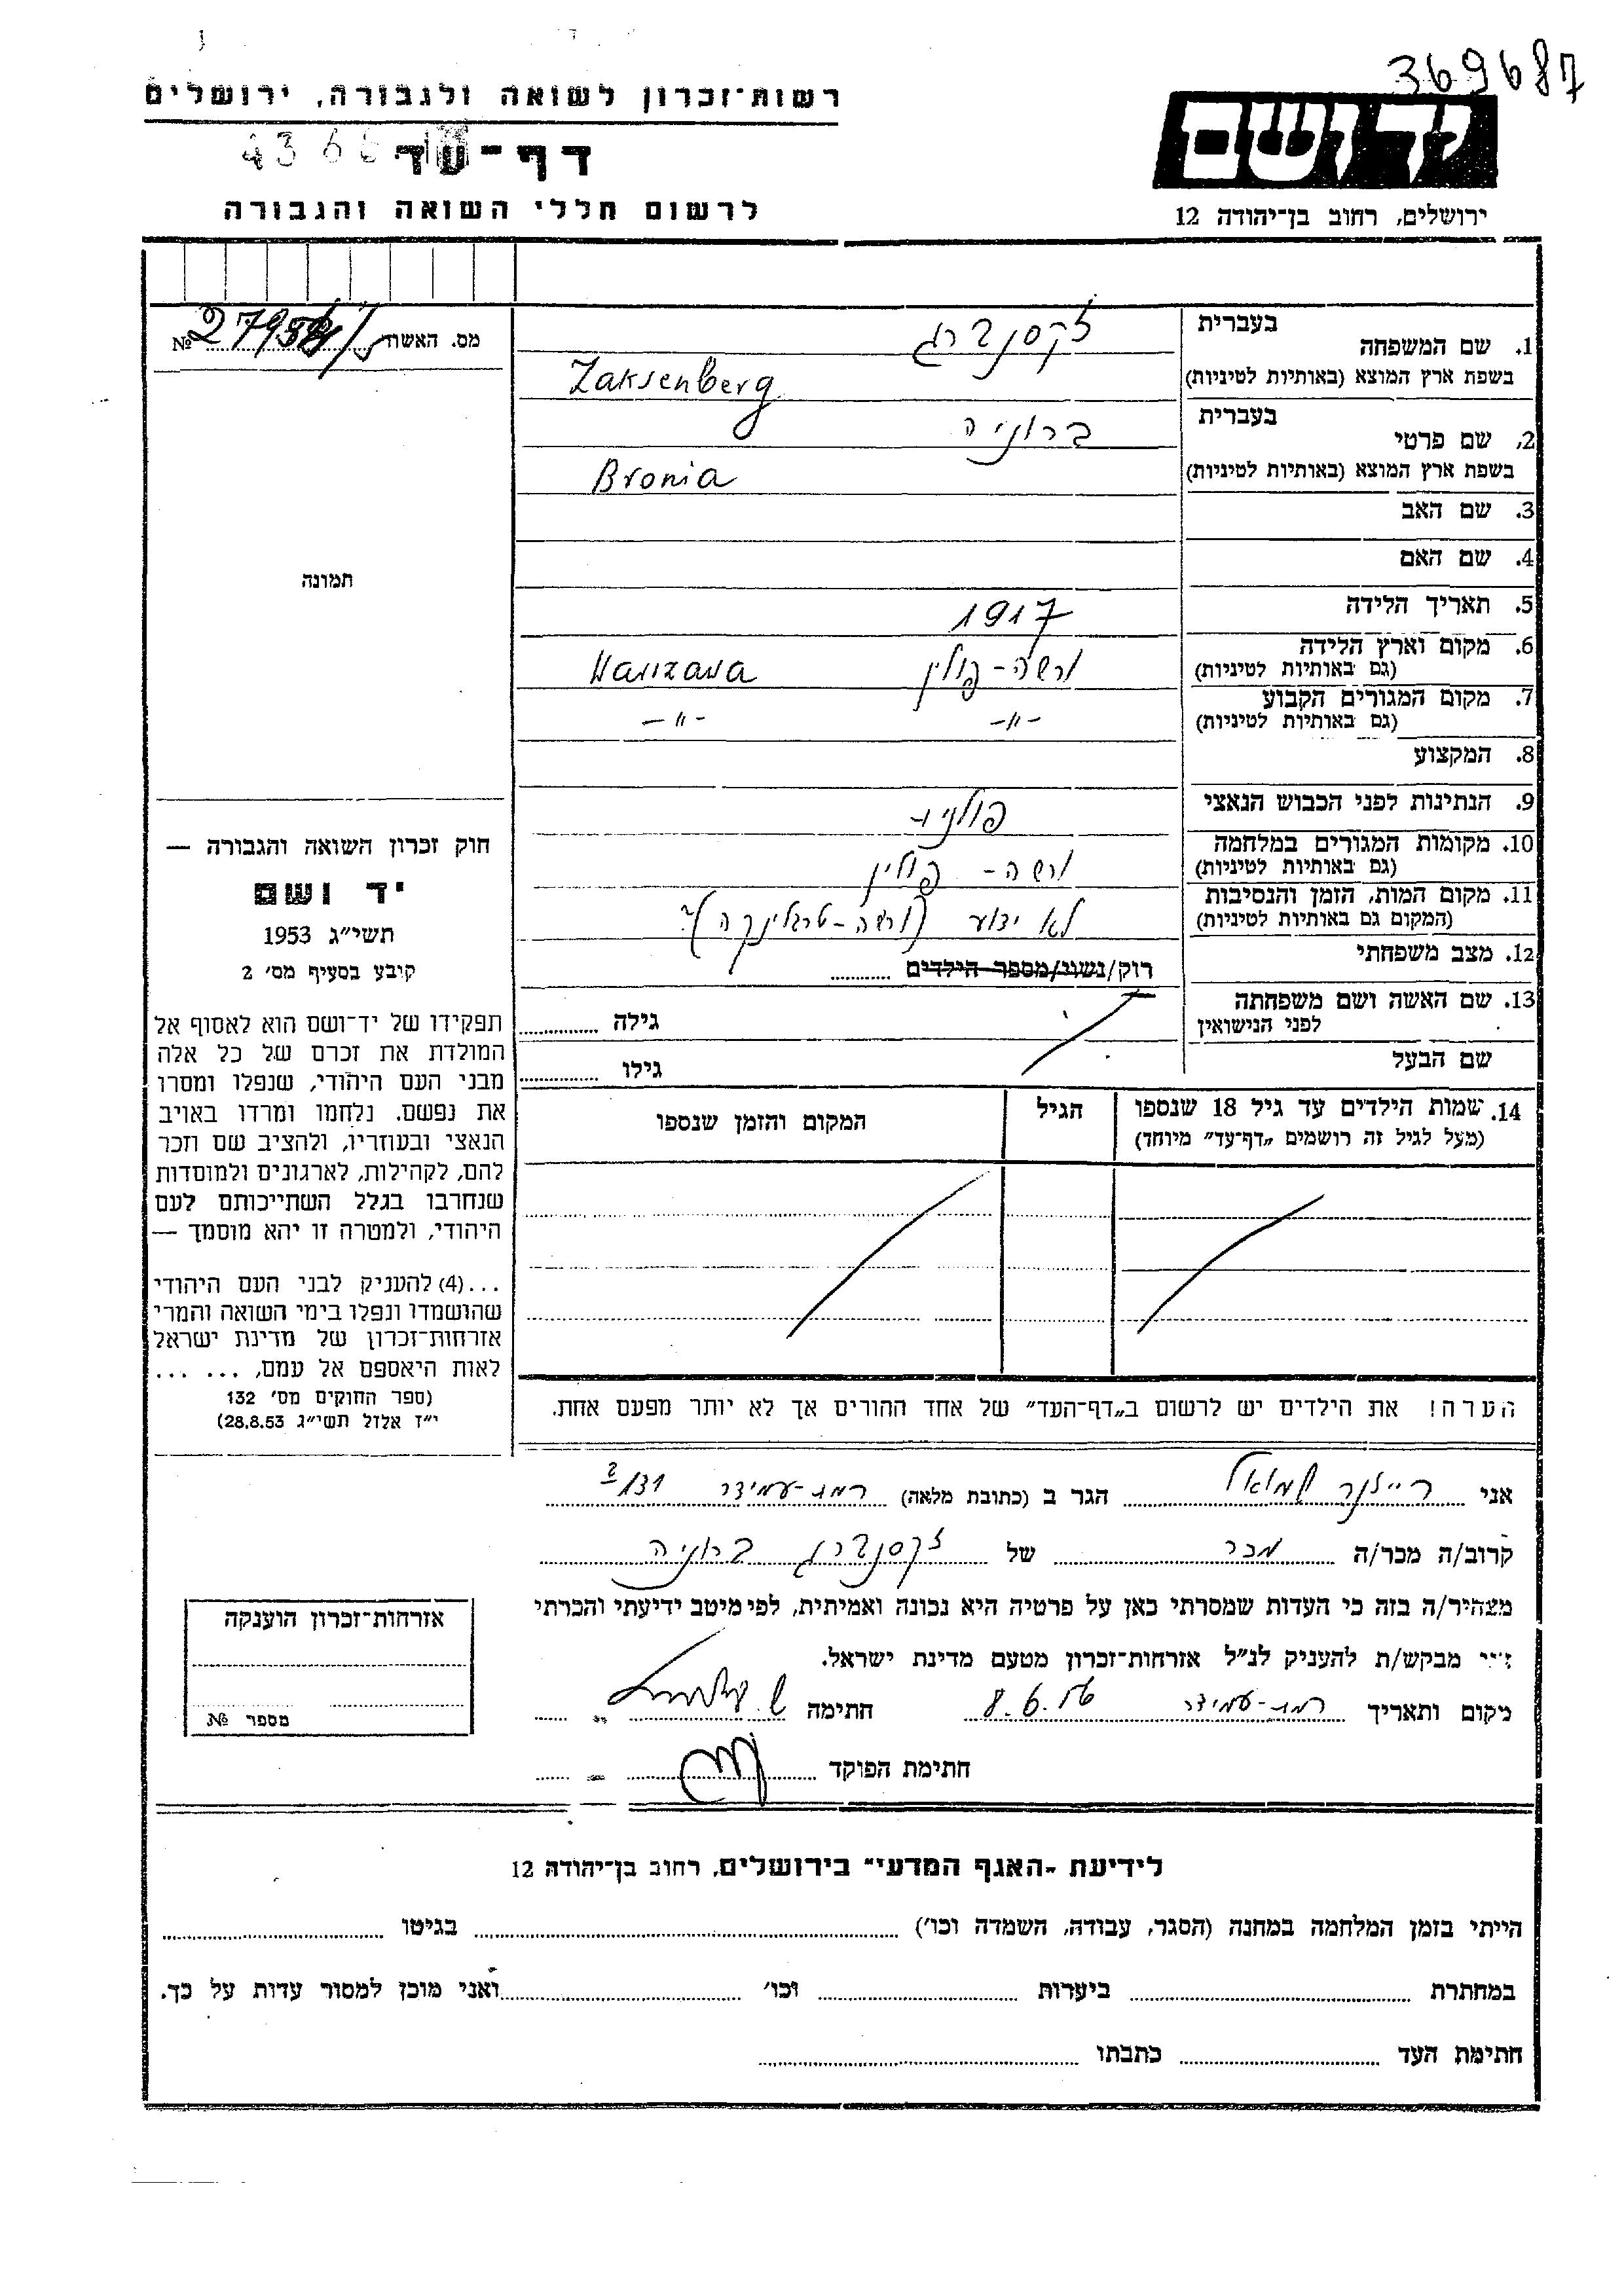 369687
רשות־זכרון לשואה ולגבורה, ירושלים
דף־עד
לרשום חללי השואה והגבורה
ידושם
ירושלים, רחוב בן־יהודה 12
מס. האשה №
1. שם המשפחה
בעברית
זקסנברג
בשפת ארץ המוצא (באותיות לטיניות)
Zaksenberg
2. שם פרטי
בעברית
ברוניה
בשפת ארץ המוצא (באותיות לטיניות)
Bronia
3. שם האב
4. שם האם
תמונה
5. תאריך הלידה
1917
6. מקום וארץ הלידה
(גם באותיות לטיניות)
ורשה - פולין Warszawa
7. מקום המגורים הקבוע
(גם באותיות לטיניות)
-"- -"-
8. המקצוע
9. הנתינות לפני הכבוש הנאצי
פולנית
10. מקומות המגורים במלחמה
(גם באותיות לטיניות)
ורשה - פולין
11. מקום המות, הזמן והנסיבות
(המקום גם באותיות לטיניות)
לא ידוע (ורשה - טרבלינקה)?
12. מצב משפחתי
רוק/נשוי/מספר הילדים
13. שם האשה ושם משפחתה
לפני הנישואין
גילה
שם הבעל
גילו
14. שמות הילדים עד גיל 18 שנספו
(מעל לגיל זה רושמים „דף־עד" מיוחד)
הגיל
המקום והזמן שנספו
חוק זכרון השואה והגבורה —
יד ושם
תשי"ג 1953
קובע בסעיף מס' 2
תפקידו של יד־ושם הוא לאסוף אל
המולדת את זכרם של כל אלה
מבני העם היהודי, שנפלו ומסרו
את נפשם. נלחמו ומרדו באויב
הנאצי ובעוזריו, ולהציב שם וזכר
להם, לקהילות, לארגונים ולמוסדות
שנחרבו בגלל השתייכותם לעם
היהודי, ולמטרה זו יהא מוסמך —
...(4) להעניק לבני העם היהודי
שהושמדו ונפלו בימי השואה והמרי
אזרחות־זכרון של מדינת ישראל
לאות היאספם אל עמם, ... ...
(ספר החוקים מס' 132
י"ז אלול תשי"ג 28.8.53)
הערה! את הילדים יש לרשום ב„דף־העד" של אחד ההורים אך לא יותר מפעם אחת.
אני שמואל הגר ב (כתובת מלאה) רמת-עמידר
קרוב/ה מכר/ה מכר של זקסנברג ברוניה
מצהיר/ה בזה כי העדות שמסרתי כאן על פרטיה היא נכונה ואמיתית, לפי מיטב ידיעתי והכרתי
מבקש/ת להעניק לנ"ל אזרחות־זכרון מטעם מדינת ישראל.
מקום ותאריך רמת-עמידר 8.6.56 חתימה
חתימת הפוקד
אזרחות־זכרון הוענקה
מספר №
לידיעת ־האגף המדעי" בירושלים, רחוב בן־יהודה 12
הייתי בזמן המלחמה במחנה (הסגר, עבודה, השמדה וכו') בגיטו
במחתרת ביערות וכו' ואני מוכן למסור עדות על כך.
חתימת העד כתבתו